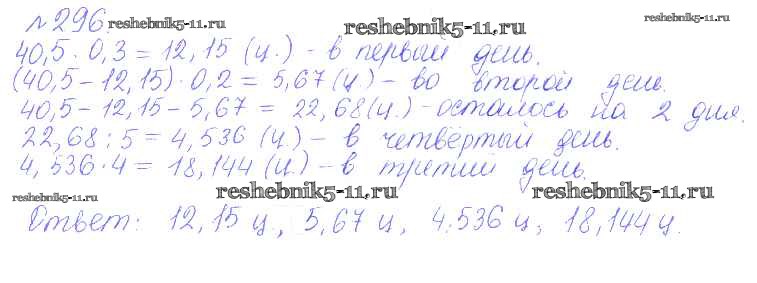 №296. reshebnik5-11.ru reshebnik5-11.ru reshebnik5-11.ru
40,5 · 0,3 = 12,15 (ц.) - в первый день.
(40,5 - 12,15) · 0,2 = 5,67 (ц.) - во второй день.
40,5 - 12,15 - 5,67 = 22,68 (ц.) - осталось на 2 дня.
22,68 : 5 = 4,536 (ц.) - в четвёртый день.
4,536 · 4 = 18,144 (ц.) - в третий день.
reshebnik5-11.ru reshebnik5-11.ru reshebnik5-11.ru
Ответ: 12,15 ц., 5,67 ц, 4,536 ц, 18,144 ц.